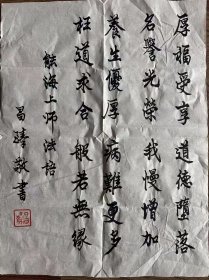 厚福受享　道德墮落
名譽光榮　我慢增加
養生優厚　病難更多
枉道求合　般若無緣
能海上师法語
昌臻敬書